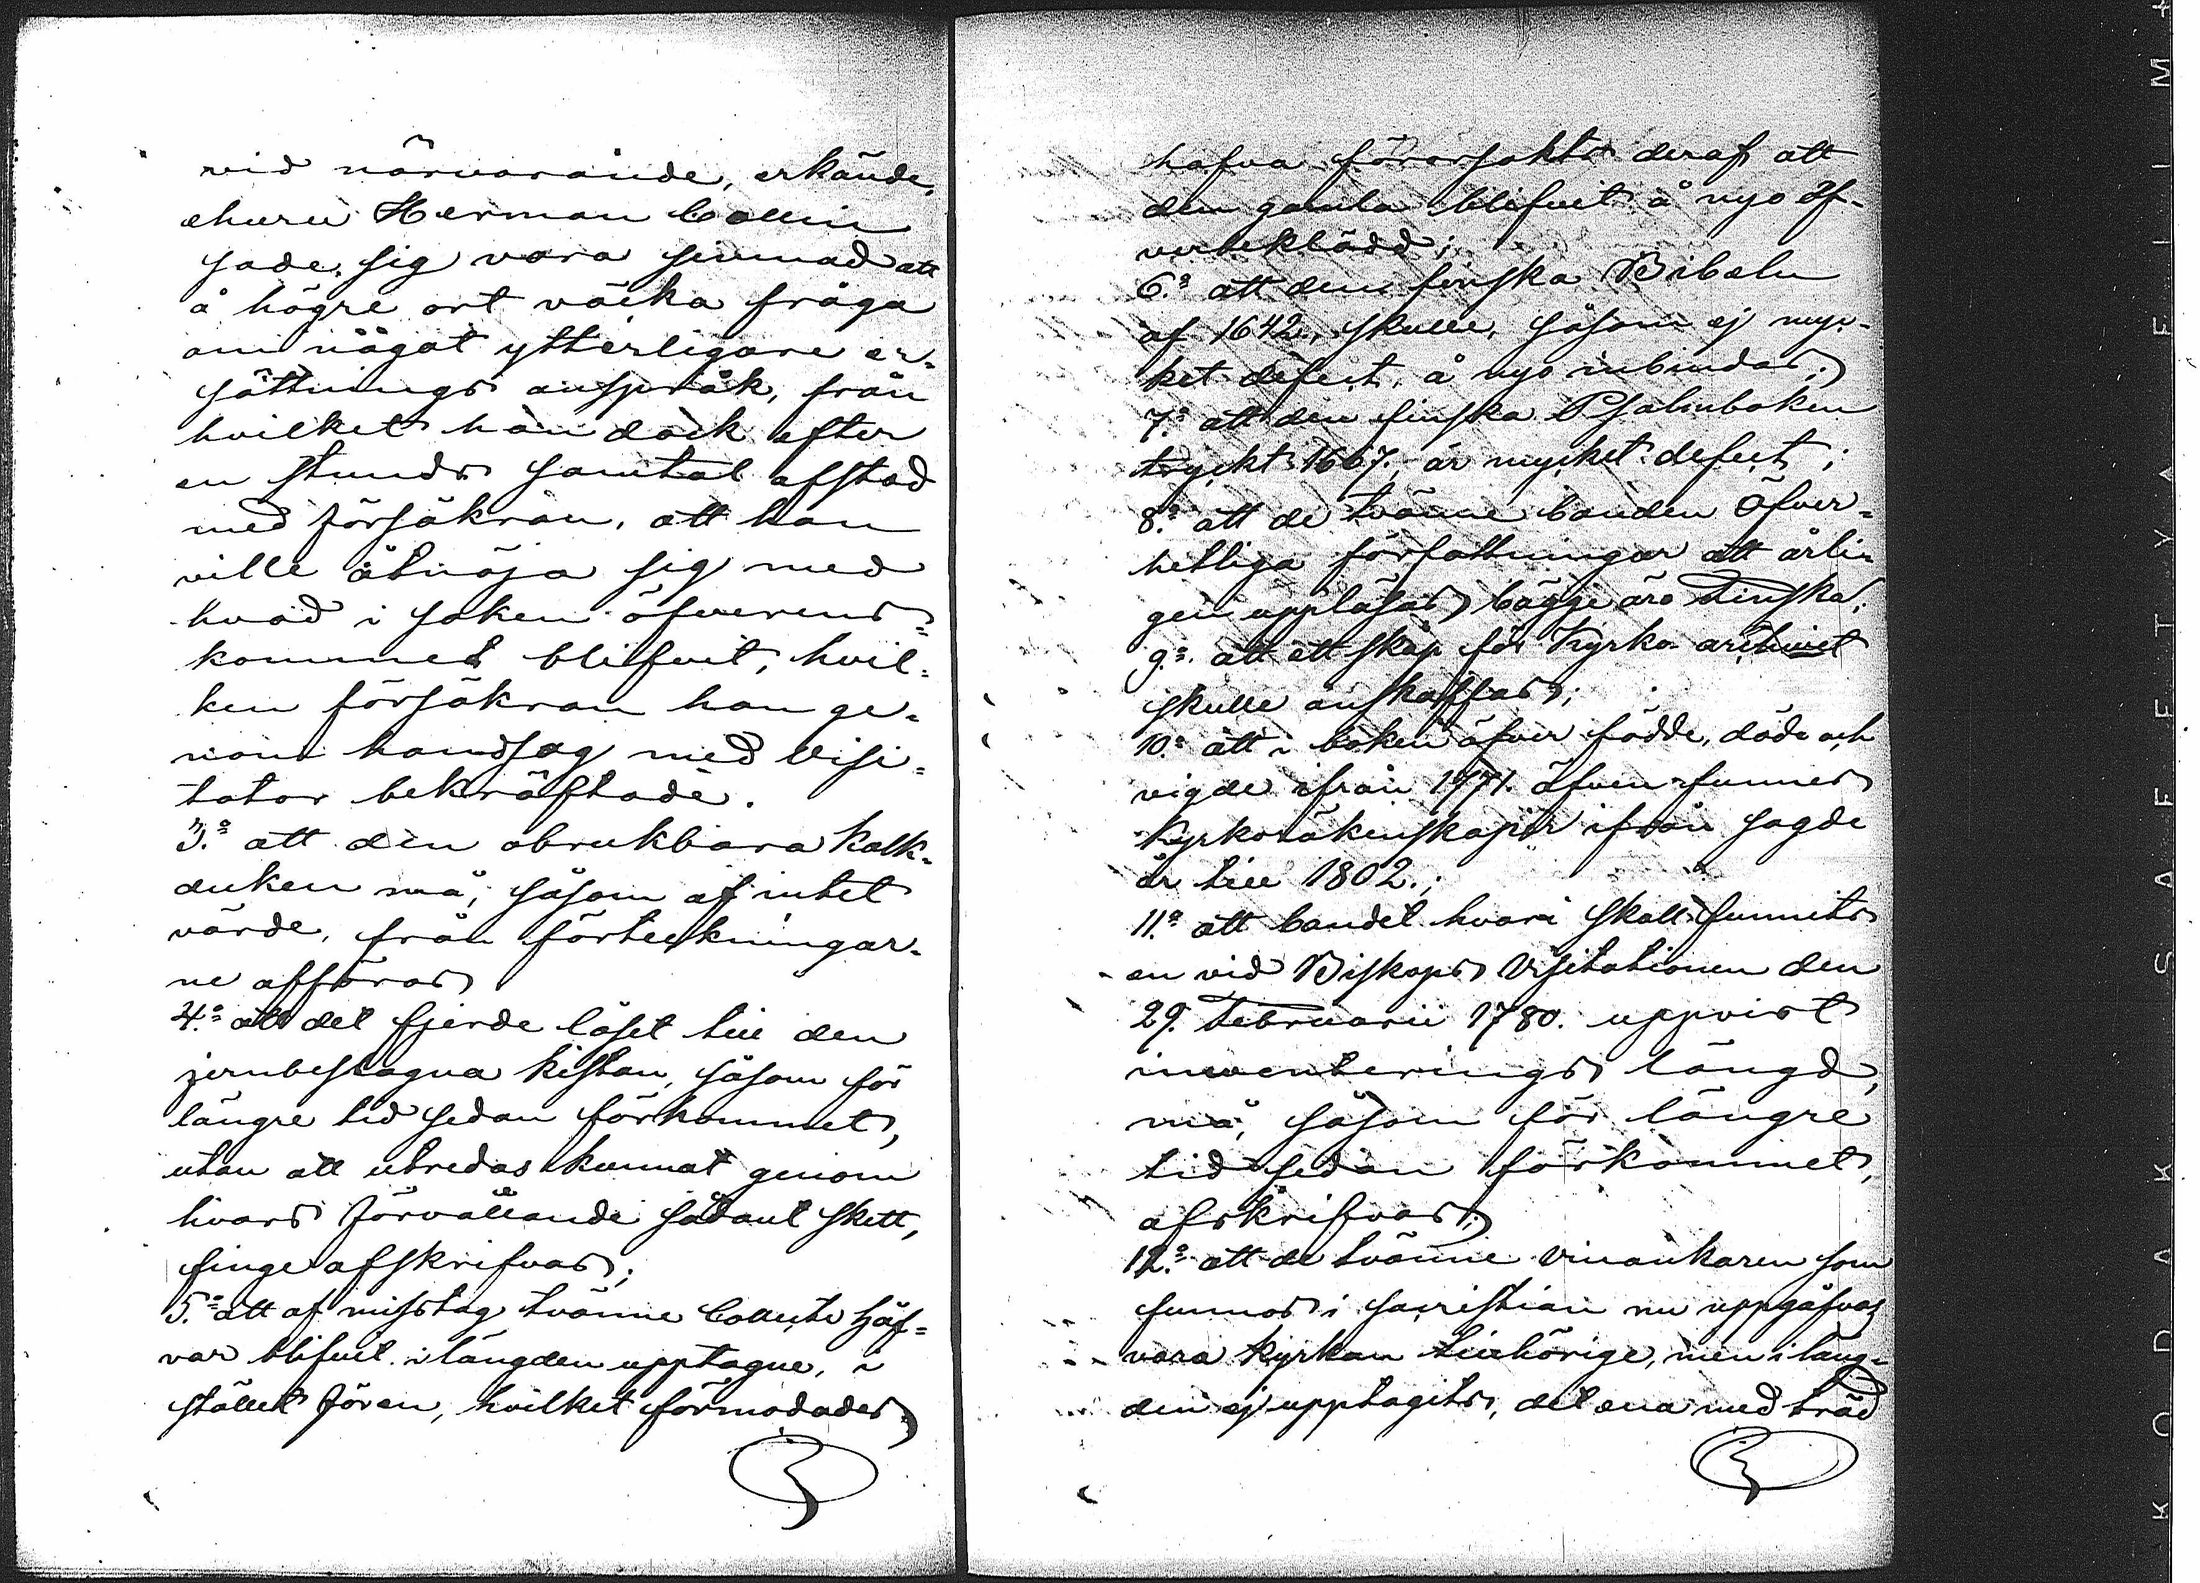 vid närvarande, erkände,
ehuru Herman Collin
sade, sig vara sinnad att
å högre ort väcka fråga
om något ytterligare er-
sättnings anspråk, från
hvilket han dock efter
en stunds samtal afstod
med försäkran, att han
ville åtnöja sig med
hvad i saken öfverens-
kommet blifvit, hvil-
ken försäkran han ge-
nom handslag med Visi-
tator bekräftade.
3:o att den obrukbara kalk-
duken må, såsom af intet
värde, från förteckningar-
ne afföras
4:o att det fjerde låset till den
jernbeslagna kistan, såsom för
längre tid sedan förkommet,
utan att utredas kunnat genom
hvars förvållande sådant skett,
finge afskrifvas;
5:o att af misstag tvänne Collecte håf-
var blifvit i längden upptagne, i
stället för en, hvilket förmodades
hafva förorsakats deraf att
den gamla blifvit å nyo öf-
verbeklädd;
6:o att den finska Bibeln
af 1642, skulle, såsom ej myc-
ket defect, å nyo inbindas;
7:o att den finska Psalmboken
tryckt 1667, är mycket defect;
8:o att de tvänne banden Öfver-
hetliga författningar att årli-
gen uppläsas, bägge äro Finska;
9:o att ett skåp för Kyrko archivet
skulle anskaffas;
10:o att i boken öfver födde, döde och
vigde ifrån 1771. äfven funnes
Kyrkoräkenskaper ifrån sagde
år till 1802.;
11:o att bandet hvari skall funnits
en vid Biskops Visitationen den
29. Februarii 1780. uppvist
inventerings längd,
må, såsom för längre
tid sedan förkommet,
afskrifvas;
12:o att de tvänne vinankaren som
funnos i sacristian nu uppgåfvos
vara Kyrkan tillhörige, men i läng-
den ej upptagits, det ena med träd